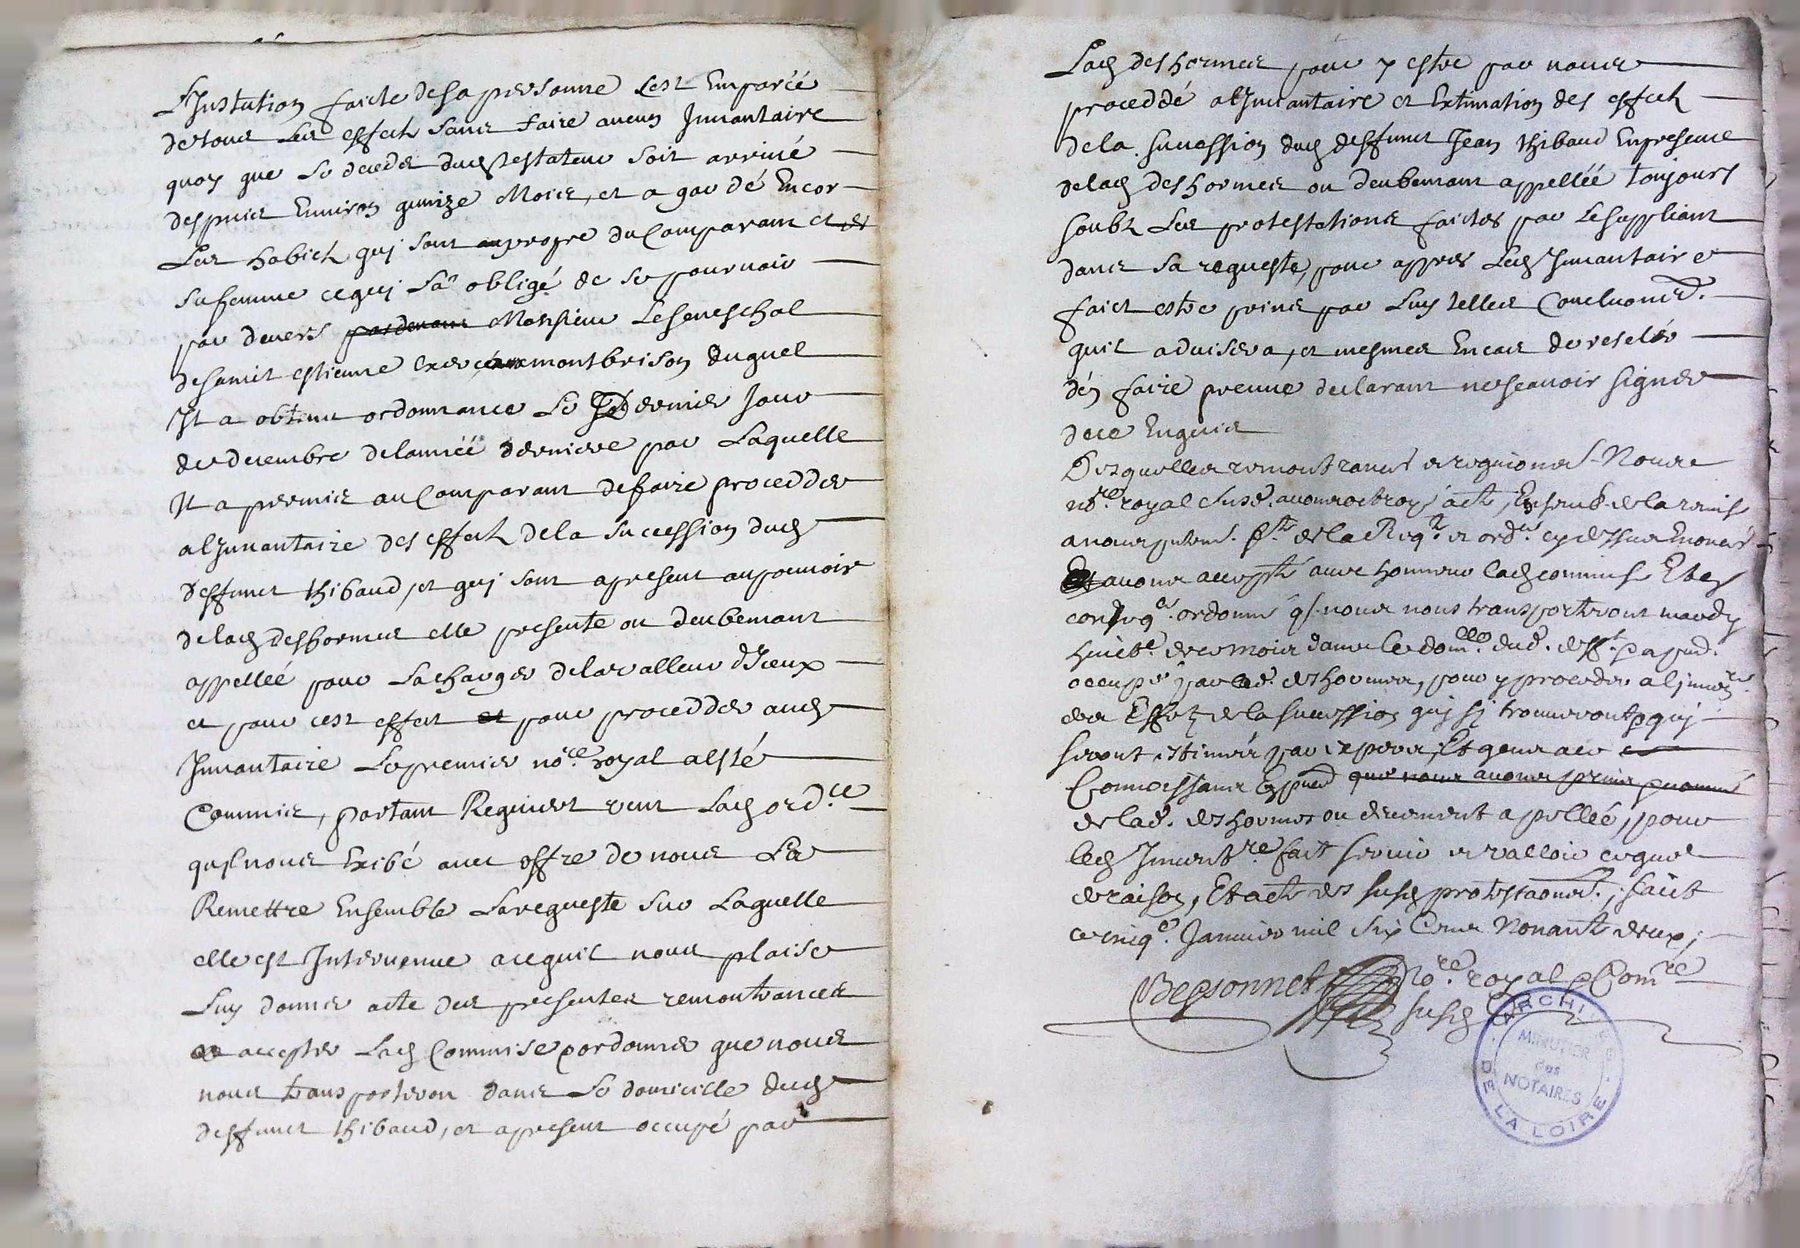 L'Instution faicte de sa personne s'est Emparéé
de tous Les effectz sans faire aucun Jnvantaire
quoy que Le decedz dud testateur soit arrivé
despuis Environ quinze Mois, et a gardé Encor
Les habictz quj sont au propre du Comparant et de
sa femme ce quj La obligé de se pourvoir
par devers par devant Monsieur Le seneschal
de sainct estienne exercéant montbrison duquel
Jl a obtenu ordonnance Le dernier Jour
de decembre de lannéé derniere par Laquelle
Jl a permis au Comparant de faire procedder
a lJnvantaire des effectz de la succession dud
deffunct thibaud, et quj sont a present au pouvoir
de lad deshormes elle presente ou deubemant
appelléé pour La charger de la valleur dJceux
et pour cest effect et pour procedder aud
Jnvantaire Le premier no.re royal a esté
Commis, partant Requiert veut Lad ord.ce
quil nous Exibé avec offre de nous La
Remettre Ensemble La requeste sur Laquelle
elle est Intervenue a ce quil nous plaise
Luy donner acte des presentes remontrances
accepter Lad Commise ordonner que nous
nous transporteron dans Le domicille dud
deffunct thibaud, et a present occupé par
Lad deshormes pour y estre par nous
proceddé a lJnvantaire et Extimation des effectz
de la succession dud deffunct Jean thibaud En presence
de lad deshormes ou deubemant appelléé toujours
soubz Les protestations faictes par Le suppliant
dans sa requeste, pour appres Led Jnvantaire
faict estre prins par Luy telles Conclusions
quil advisera, et mesmes En cas de
dén faire preuve declarant ne scavoir signer
de ce Enquis
Desquelles remontrances et requisions Nous
no.re royal susd. avons octroyé acte, Ensemb. de la remise
a nous p.te de la Req.te et ord.ce cy dessus Enoncés
avons accepté avec honneur lad commise Et en
conseq.ce ordonné q. nous nous transporterons mardy
huict.e de ce mois dans le dom.lle dud. deff.t
occupé par lad. deshormes, pour y proceder a ljnv.re
des Effectz de la succession quj sj trouveront quj
seront estimés par expers, Et gens a ce
Connoissans que nous avons prins
de lad. deshormes ou deuement apelléé, pour
led Jnvent.re fait servir et valloir ce que
de raison, Et acte des susd protestations; faict
ce cinq.e Janvier mil six Cens Nonante deux;
Bessonnet No.re royal Com.re
susd
ARCHIVES DE LA LOIRE
MINUTIER
des
NOTAIRES